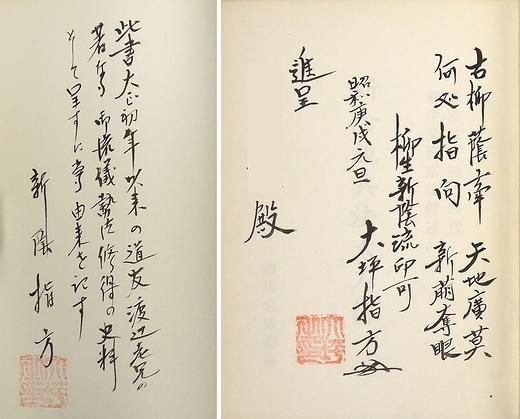 此書大正初年以来の道友渡辺老兄の
流儀勢法修得の史料
として呈すに当由来を記す
新陰指方
古柳蔭牽 天地廣莫
何処指向 新萌奪眼
柳生新陰流印可
大坪指方
昭和庚戌元旦
進呈
殿